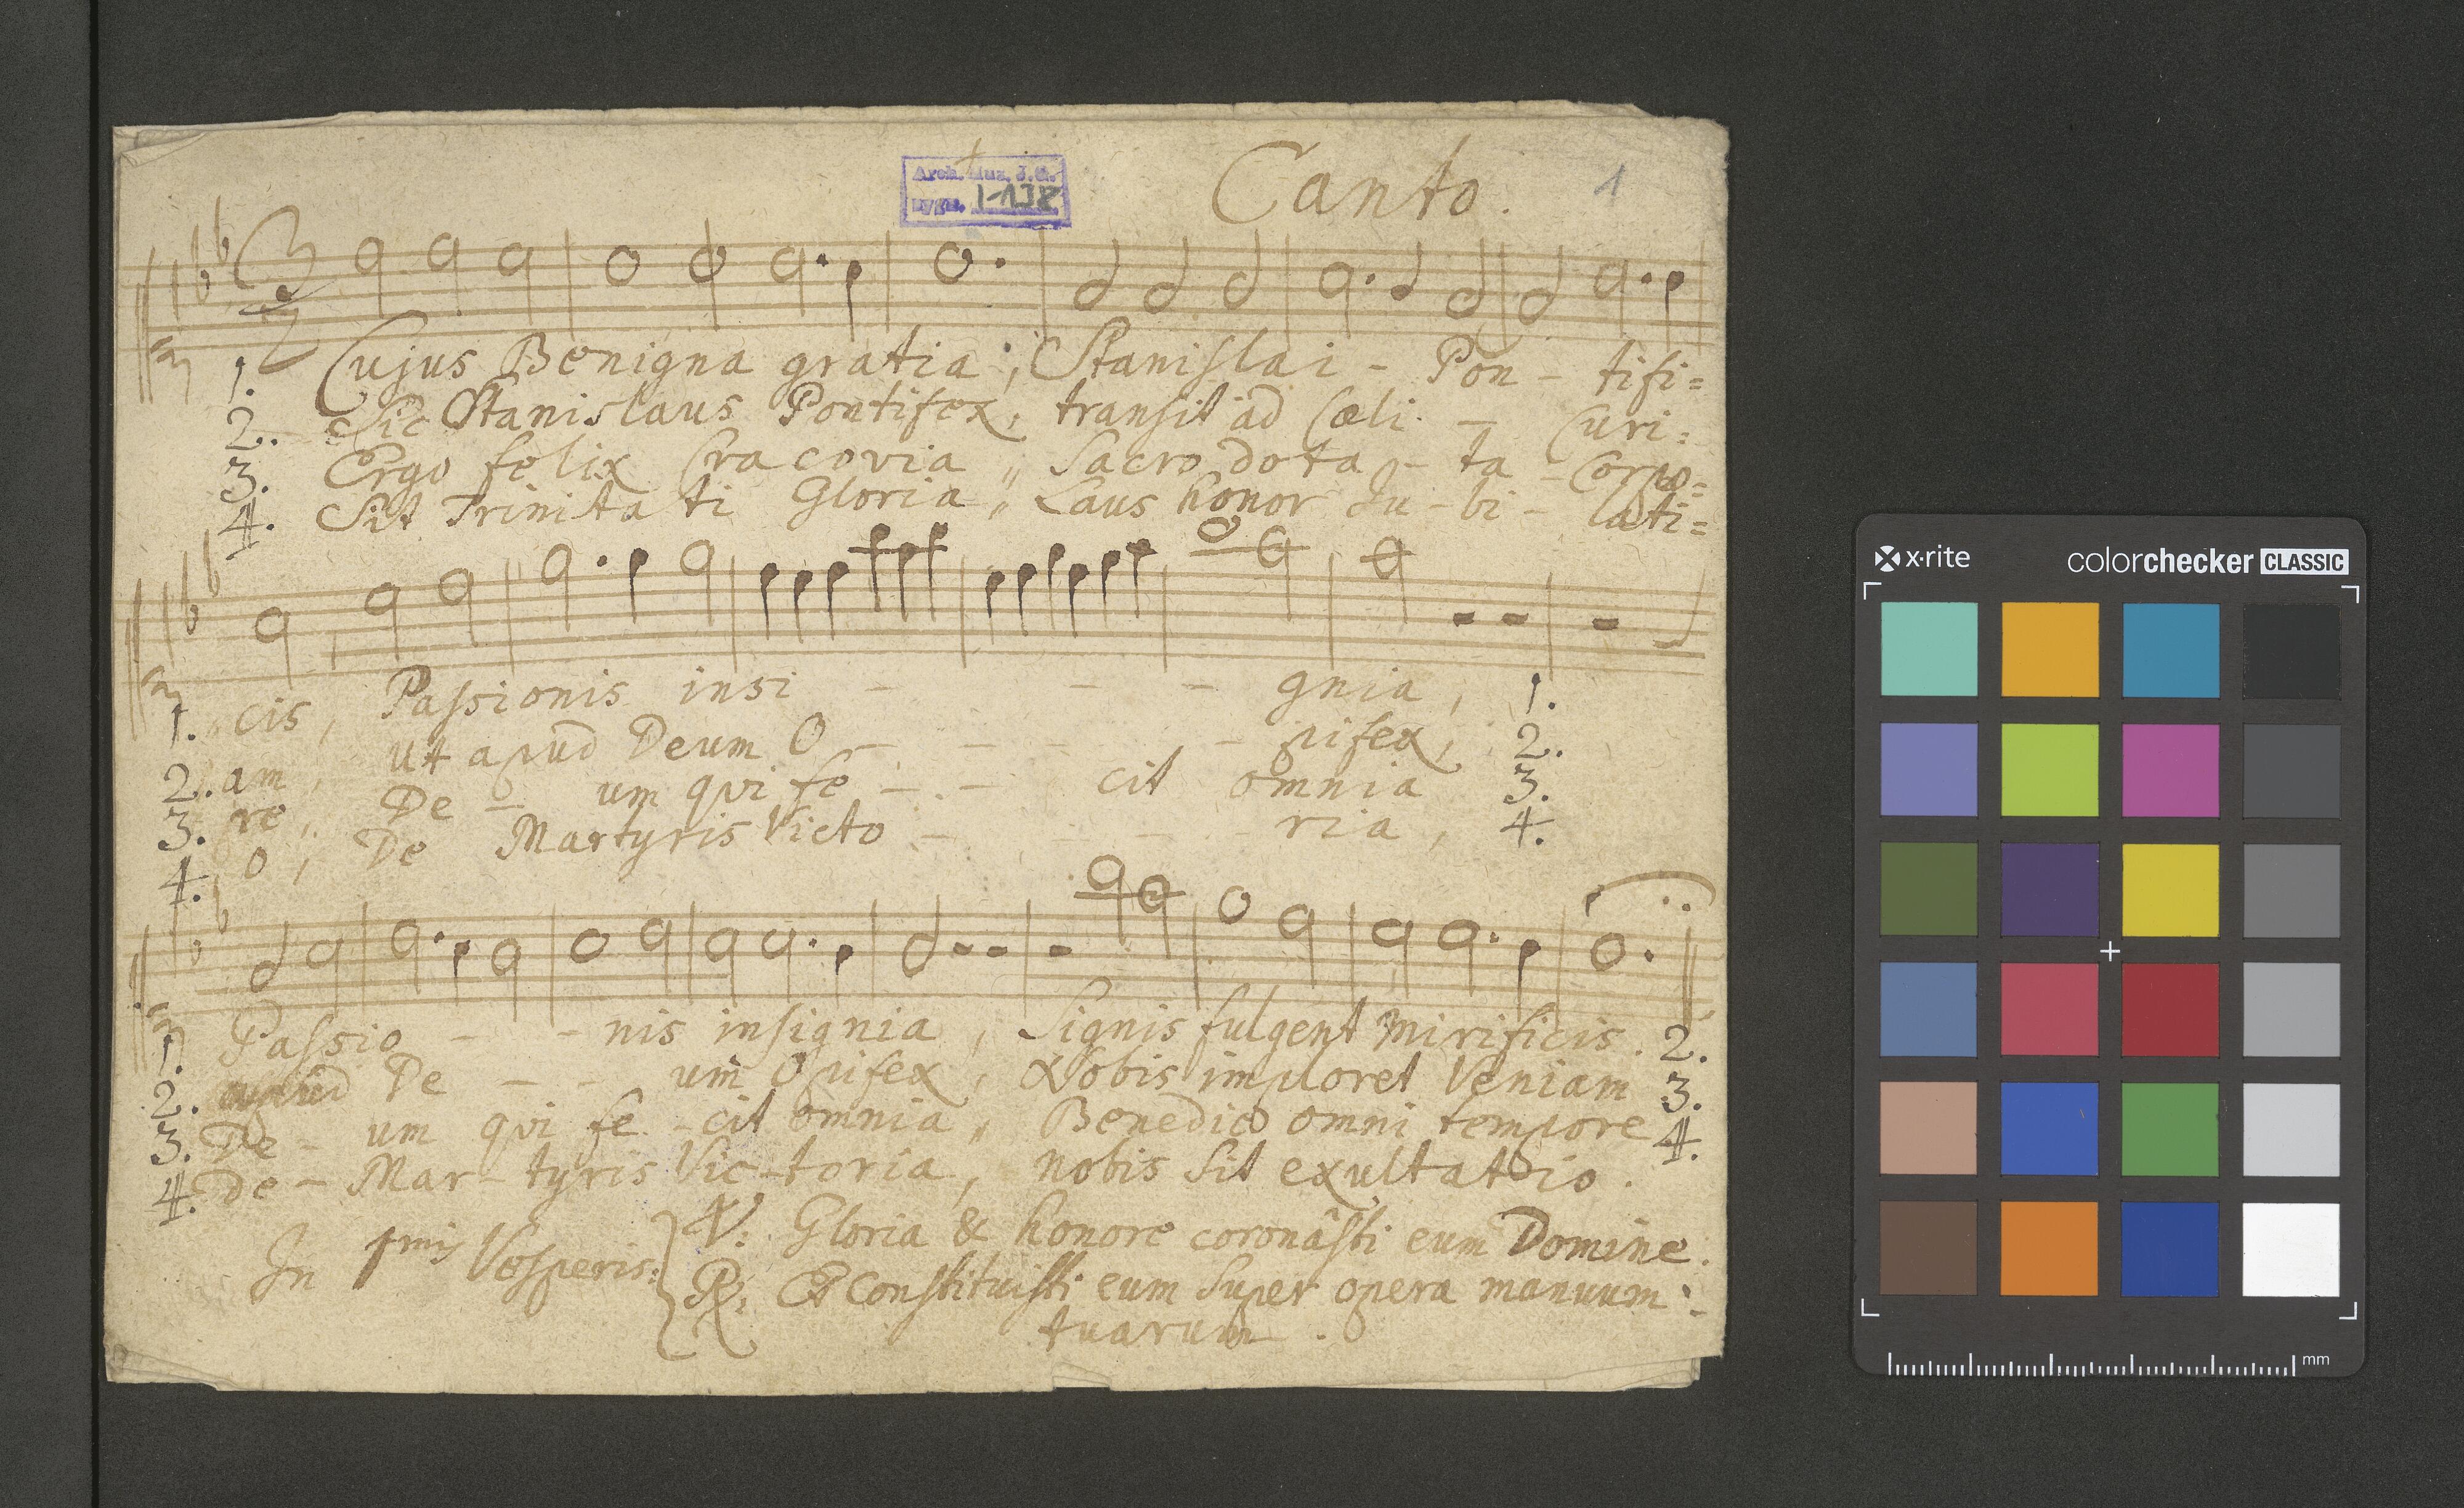 Arch. Muz. J.G.
sygn. I-138
Canto.
1
1. Cujus Benigna gratia, Stanislai - Pon - tifi=
2. Sic Stanislaus Pontifex, transit ad Cæli - Curi=
3. Ergo felix Cracovia,, Sacro dota - ta - Corpo=
4. Sit Trinitati Gloria,, Laus honor Ju - bi - lati=
1. cis, Passionis insi - - - gnia, 1.
2. am, ut apud Deum O - - - - pifex, 2.
3. re,, De - um qui fe - - cit omnia 3.
4. o, De Martyris Victo - - - ria, 4.
1. Passio - - nis insignia, Signis fulgent mirificis. 2.
2. apud De - - um Opifex, Nobis imploret Veniam 3.
3. De - um qui fe - cit omnia,, Benedic omni tempore 4.
4. de - Mar - tyris Vic - toria, nobis sit exultatio.
In 1mis Vesperis: ℣: Gloria & honore coronâsti eum Domine.
℟: Et Constituisti eum super opera manuum
tuarum.
x·rite
colorchecker CLASSIC
mm